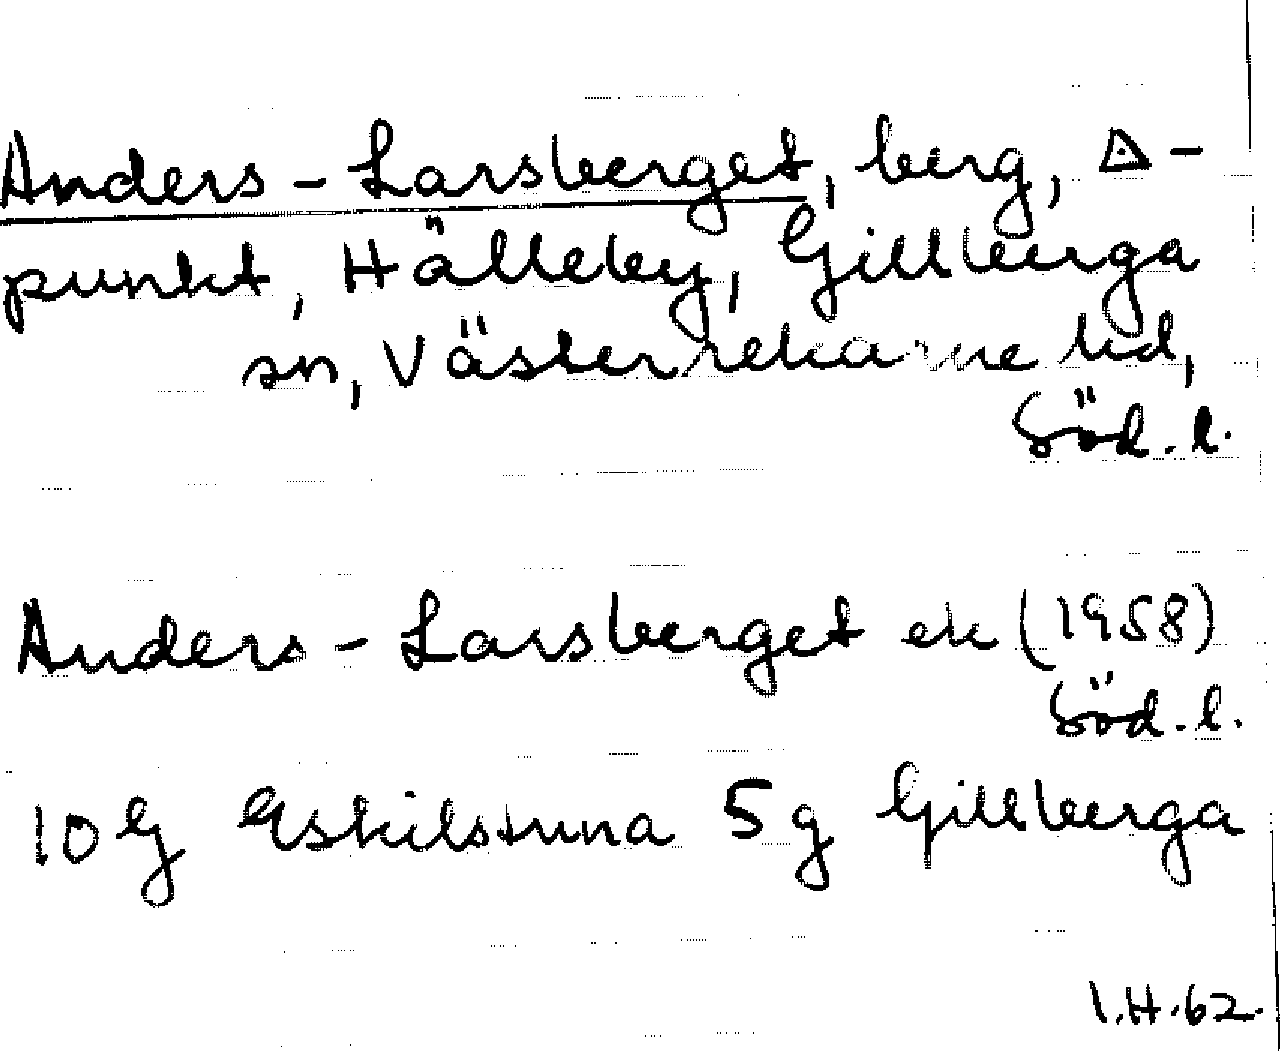 Anders-Larsberget, berg, △-
punkt, Hälleby, Gillberga
sn, Västerrekarne hd,
Söd. l.
Anders-Larsberget ek (1958)
Söd. l.
10 G Eskilstuna 5 g Gillberga
I.H. 62.